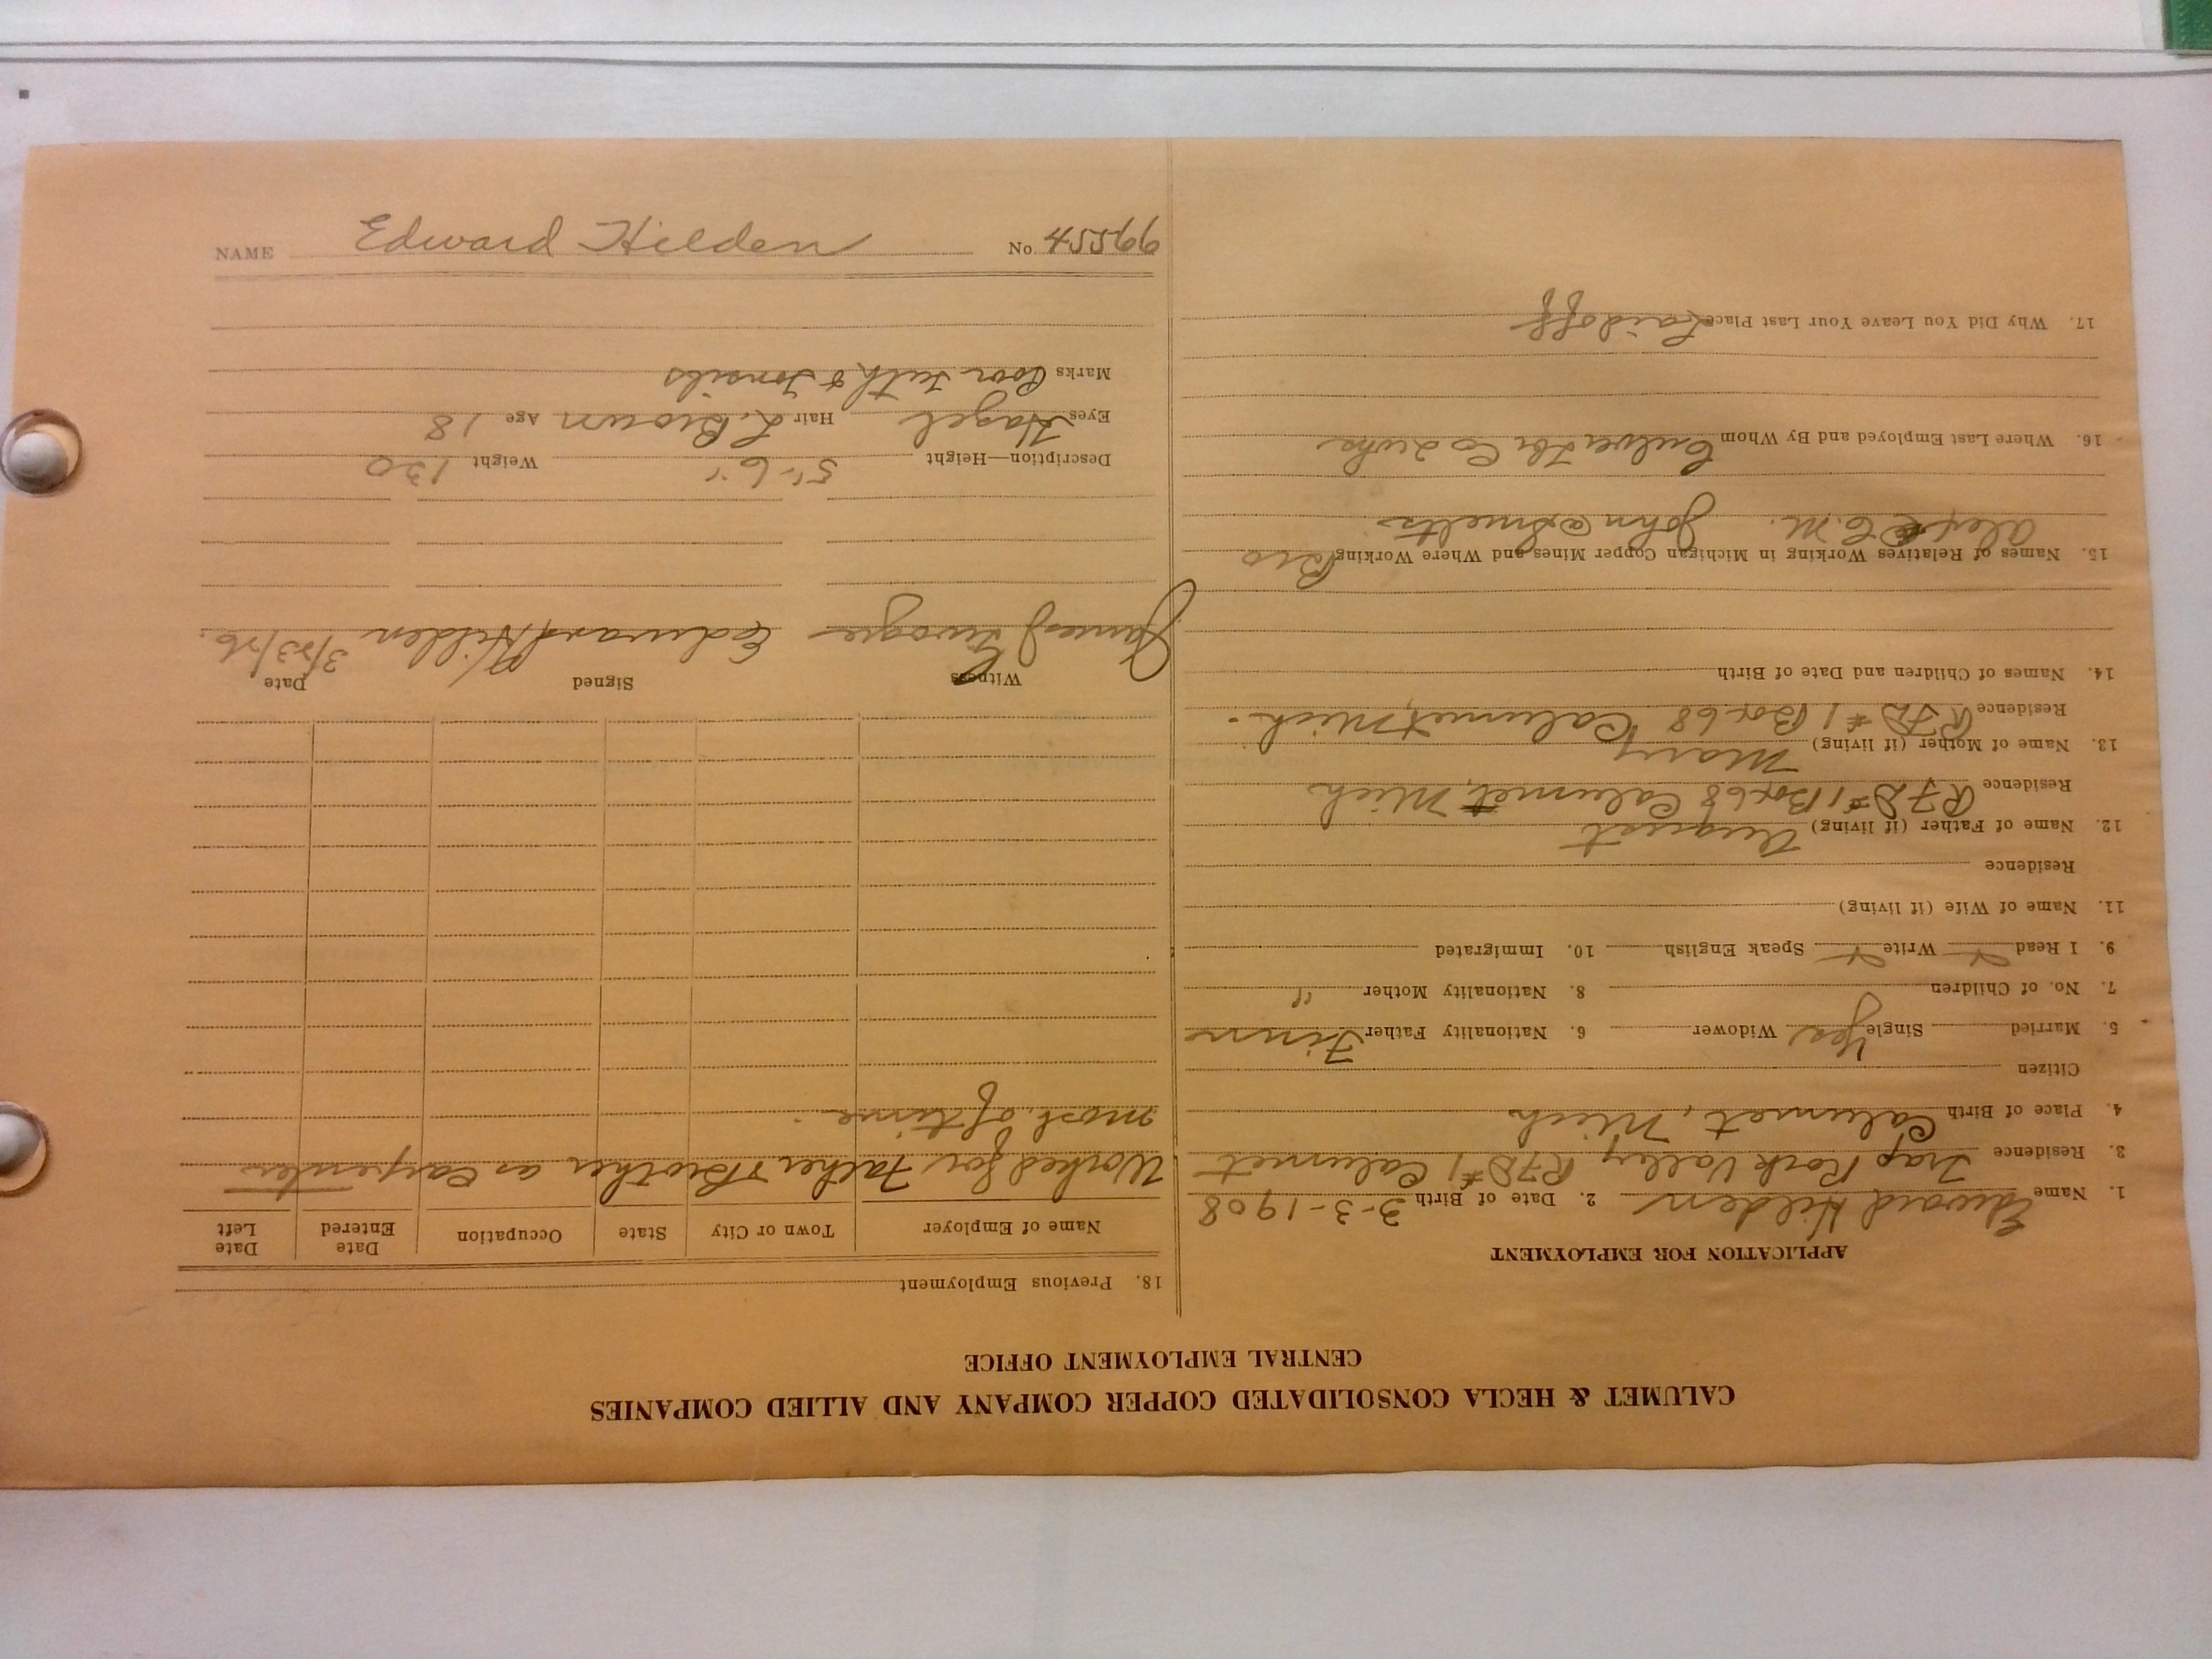 CALUMET & HECLA CONSOLIDATED COPPER COMPANY AND ALLIED COMPANIES
CENTRAL EMPLOYMENT OFFICE
APPLICATION FOR EMPLOYMENT
1. Name Edward Hilden 2. Date of Birth 3-3-1908
3. Residence Trap Rock Valley RFD #1 Calumet
4. Place of Birth Calumet, Mich
Citizen
5. Married Single Yes Widower 6. Nationality Father Finn
7. No. of Children 8. Nationality Mother "
9. I Read Write Speak English 10. Immigrated
11. Name of Wife (if living)
Residence
12. Name of Father (if living) August
Residence RFD #1 Box 68 Calumet, Mich
13. Name of Mother (if living) Mary
Residence RFD #1 Box 68 Calumet, Mich.
14. Names of Children and Date of Birth
15. Names of Relatives Working in Michigan Copper Mines and Where Working Bro
Alex C.M. John @ Smelts
16. Where Last Employed and By Whom
17. Why Did You Leave Your Last Place Laid off
18. Previous Employment
Name of Employer Town or City State Occupation Date Entered Date Left
Worked for Father & Brother as Carpenter
most of time.
Witness Signed Date
James Edward Hilden 3/23/26.
Description—Height 5'-6" Weight 130
Eyes Hazel Hair L. Brown Age 18
Marks Poor Teeth & Tonsils
NAME Edward Hilden No. 45599